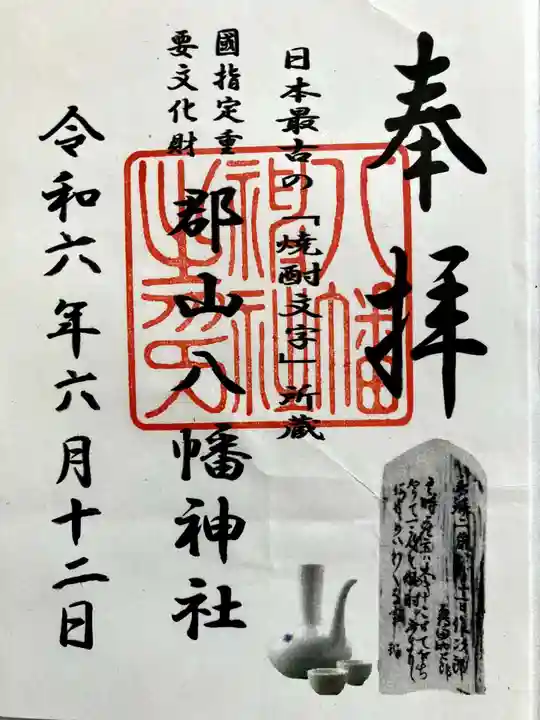 奉拝
日本最古の「焼酎文字」所蔵
國指定重
要文化財
郡山八幡神社
令和六年六月十二日
八幡
神社